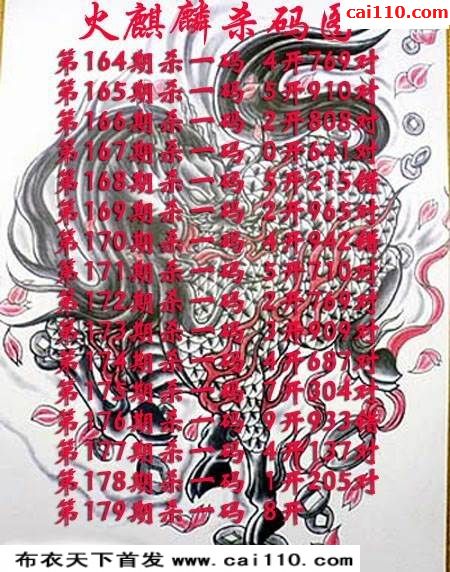 cai110.com
火麒麟杀码图
第164期杀一码 4开769对
第165期杀一码 5开910对
第166期杀一码 2开808对
第167期杀一码 0开641对
第168期杀一码 5开215错
第169期杀一码 2开965对
第170期杀一码 4开942错
第171期杀一码 5开710对
第172期杀一码 2开769对
第173期杀一码 3开909对
第174期杀一码 4开687对
第175期杀一码 7开304对
第176期杀一码 9开933错
第177期杀一码 4开137对
第178期杀一码 1开205对
第179期杀一码 8开
布衣天下首发 www.cai110.com